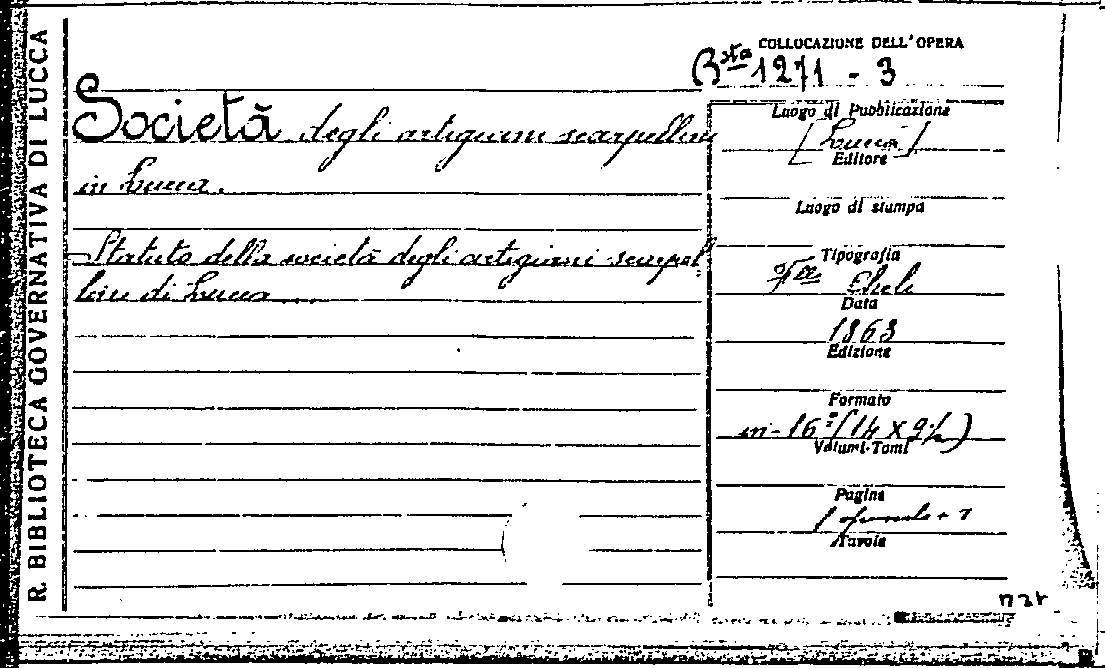 R. BIBLIOTECA GOVERNATIVA DI LUCCA
COLLOCAZIONE DELL'OPERA
Bsta 1271 - 3
Società degli artigiani scarpellini
in Lucca.
Statuto della società degli artigiani scarpel
lini di Lucca
Luogo di Pubblicazione
[Lucca]
Editore
Luogo di stampa
Tipografia
Data
1863
Edizione
Formato
in-16° (14 x 9½)
Volumi-Tomi
Pagine
Tavole